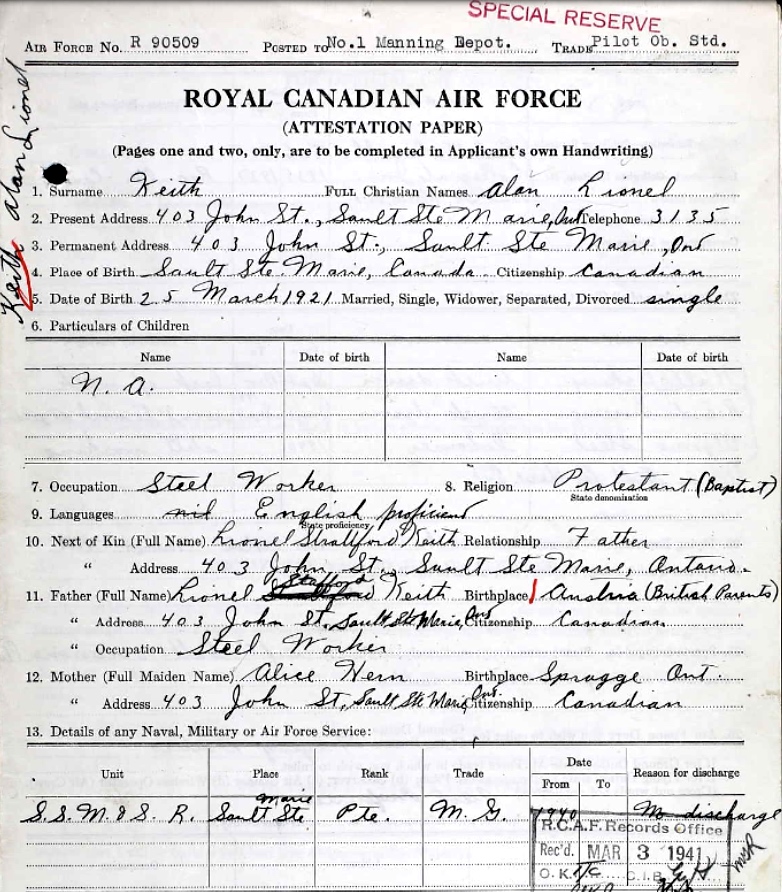 SPECIAL RESERVE
AIR FORCE No. R 90509 POSTED TO No.1 Manning Depot. TRADE Pilot Ob. Std.
ROYAL CANADIAN AIR FORCE
(ATTESTATION PAPER)
(Pages one and two, only, are to be completed in Applicant's own Handwriting)
Keith Alan Lionel
1. Surname Keith FULL Christian Names Alan Lionel
2. Present Address 403 John St., Sault Ste Marie, Ont Telephone 3135
3. Permanent Address 403 John St., Sault Ste Marie, Ont
4. Place of Birth Sault Ste. Marie, Canada. Citizenship Canadian
5. Date of Birth 25 March 1921 Married, Single, Widower, Separated, Divorced single
6. Particulars of Children
Name Date of birth Name Date of birth
N. A.
7. Occupation Steel Worker 8. Religion Protestant (Baptist)
State denomination
9. Languages nil English proficient
State proficiency
10. Next of Kin (Full Name) Lionel Stratford Keith Relationship Father
" Address 403 John St., Sault Ste Marie, Ontario.
Stafford
11. Father (Full Name) Lionel Keith Birthplace Austria (British Parents)
" Address 403 John St, Sault Ste Marie, Ont Citizenship Canadian
" Occupation Steel Worker
12. Mother (Full Maiden Name) Alice Hern Birthplace Spragge Ont.
" Address 403 John St, Sault Ste Marie Ont. Citizenship Canadian
13. Details of any Naval, Military or Air Force Service:
Unit Place Rank Trade Date Reason for discharge
From To
Marie
S.S.M. & S. R. Sault Ste Pte. M. G. 1940 No discharge
R.C.A.F. Records Office
Rec'd. MAR 3 1941
O.K. C.I.B.